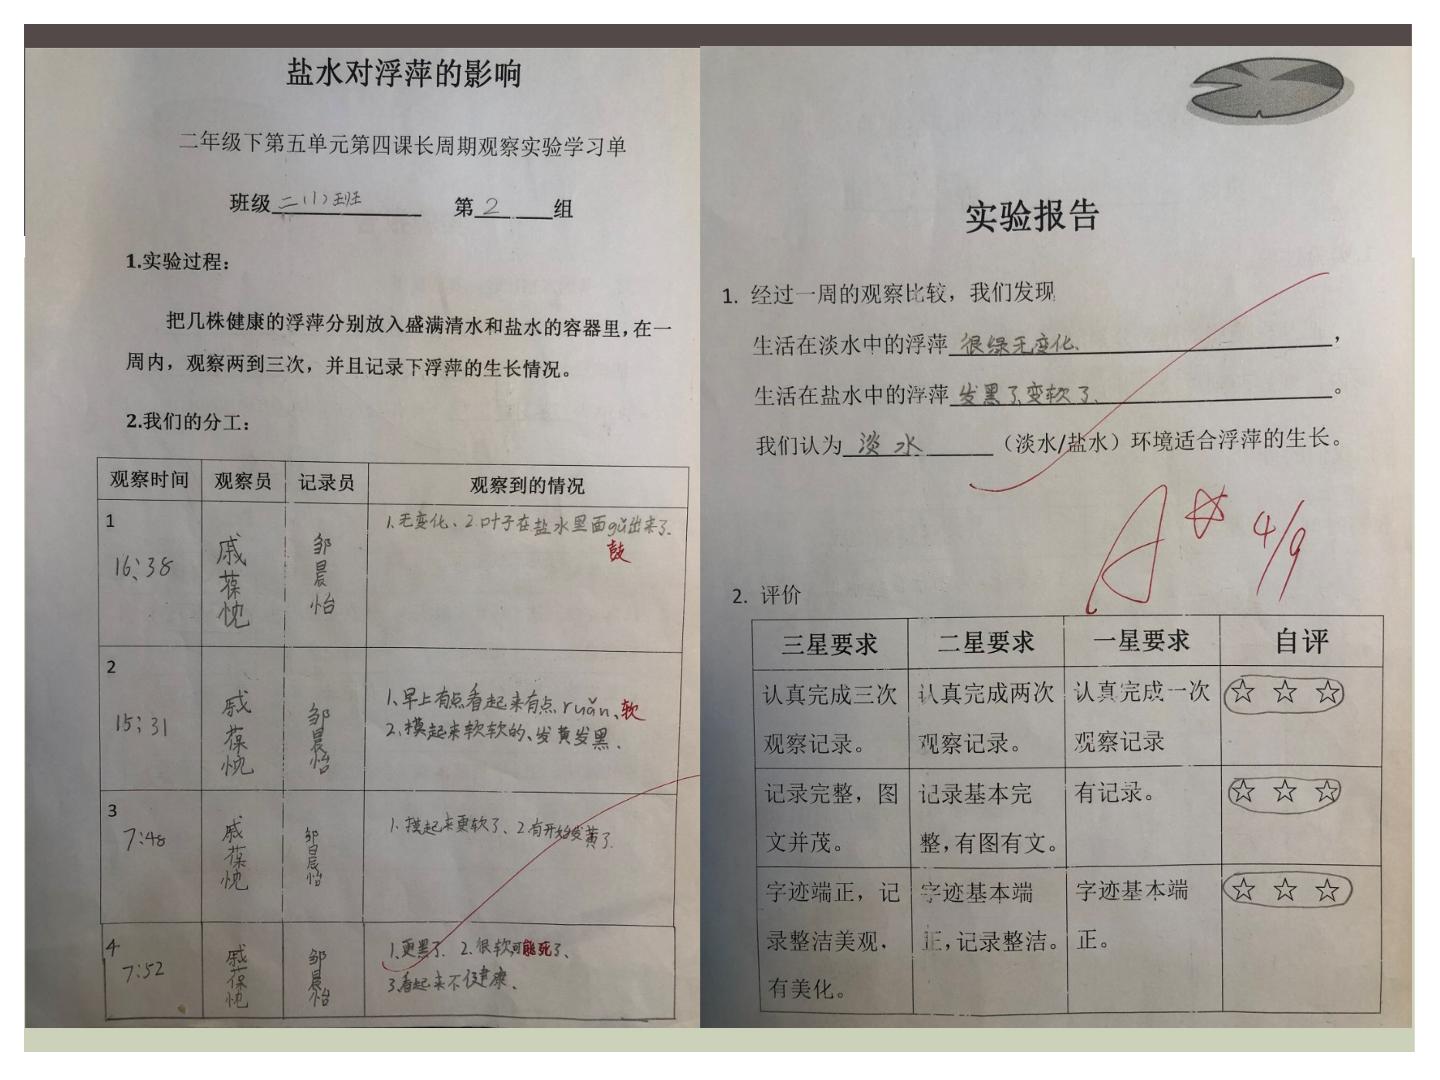 盐水对浮萍的影响
二年级下第五单元第四课长周期观察实验学习单
班级二(1)班 第2组
1.实验过程：
把几株健康的浮萍分别放入盛满清水和盐水的容器里，在一
周内，观察两到三次，并且记录下浮萍的生长情况。
2.我们的分工：
观察时间 观察员 记录员 观察到的情况
1
16:38
戚葆忱
邹晨怡
1、无变化、2.叶子在盐水里面gǔ出来了.
鼓
2
15:31
戚葆忱
邹晨怡
1、早上有点看起来有点、ruǎn、软
2、摸起来软软的、发黄发黑.
3
7:48
戚葆忱
邹晨怡
1、摸起来更软了、2.有开始发黄了.
4
7:52
戚葆忱
邹晨怡
1、更黑了. 2.很软,可能死了、
3.看起来不健康、
实验报告
1. 经过一周的观察比较，我们发现
生活在淡水中的浮萍很绿无变化、，
生活在盐水中的浮萍发黑了、变软了、。
我们认为淡水（淡水/盐水）环境适合浮萍的生长。
A☆ 4/9
2. 评价
三星要求 二星要求 一星要求 自评
认真完成三次
观察记录。
认真完成两次
观察记录。
认真完成一次
观察记录
☆ ☆ ☆
记录完整，图
文并茂。
记录基本完
整，有图有文。
有记录。
☆ ☆ ☆
字迹端正，记
录整洁美观，
有美化。
字迹基本端
正，记录整洁。
字迹基本端
正。
☆ ☆ ☆